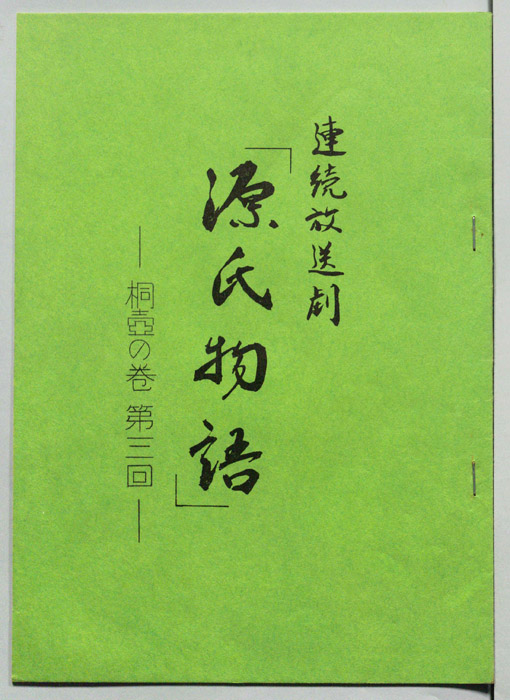 連続放送劇
「源氏物語」
―桐壺の巻 第三回―